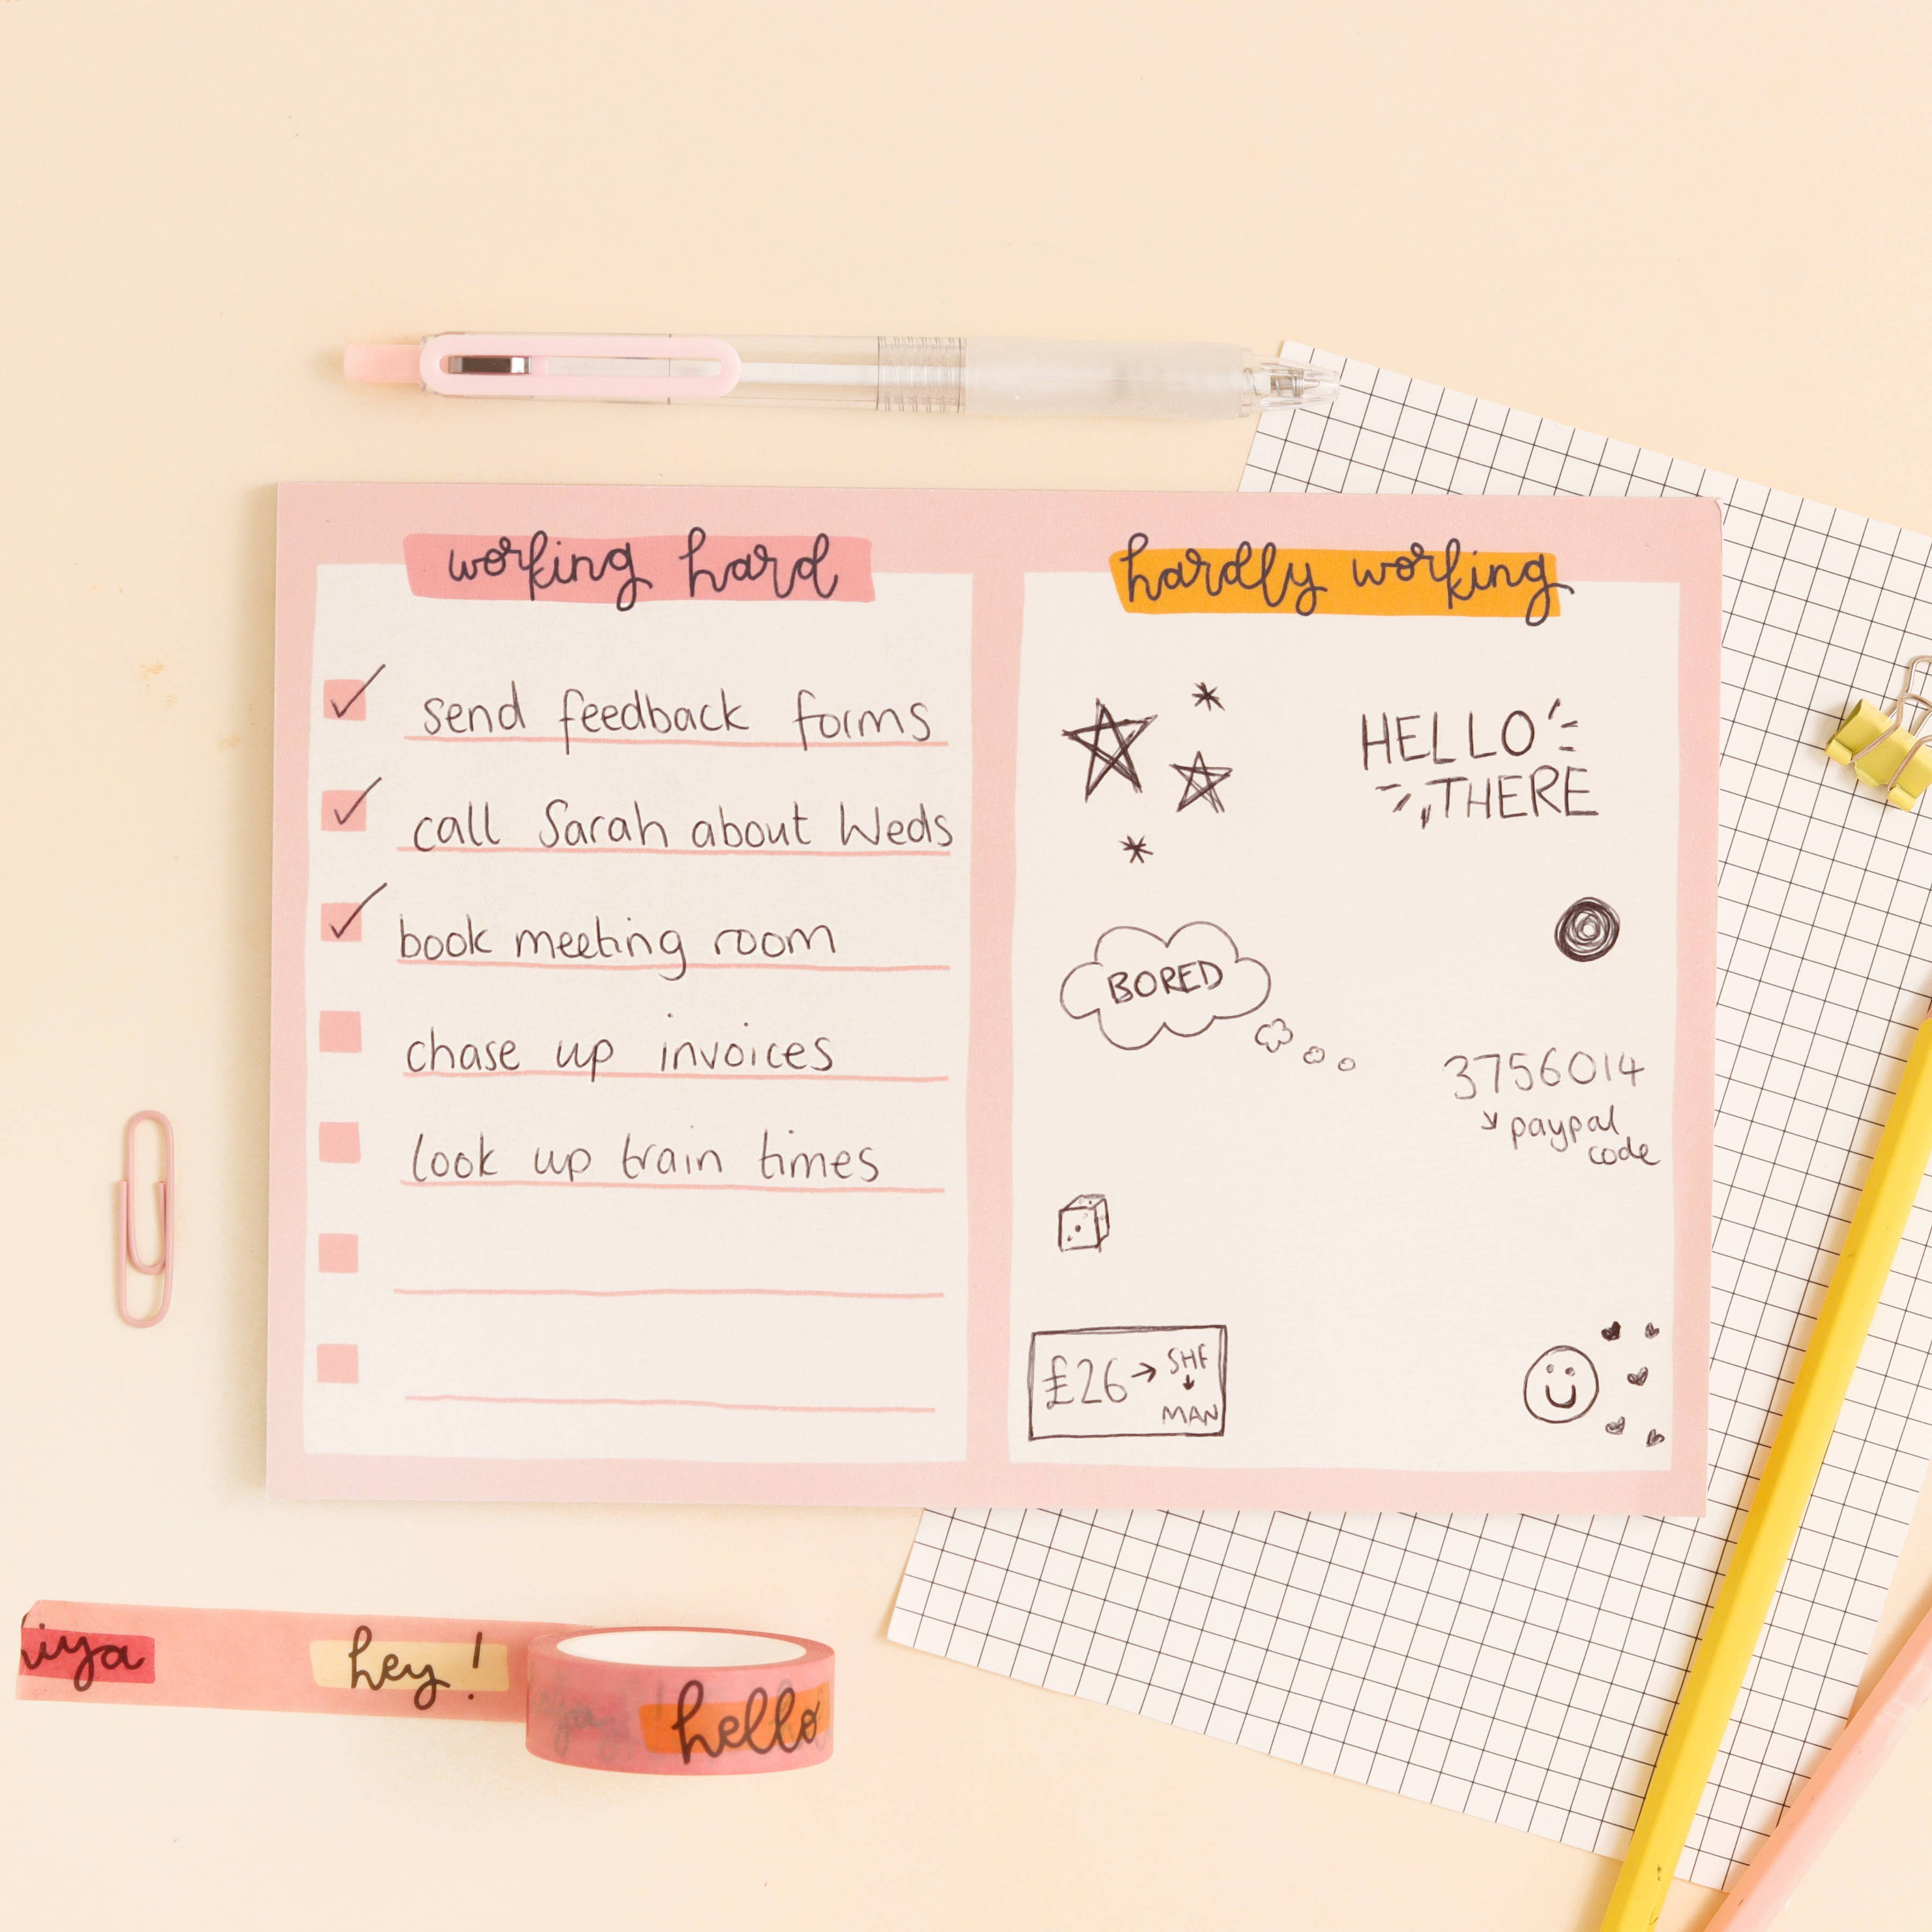 working hard
send feedback forms
call Sarah about Weds
book meeting room
chase up invoices
look up train times
hardly working
HELLO
THERE
BORED
3756014
paypal
code
£26 → SHF
↓
MAN
iya
hey!
hello